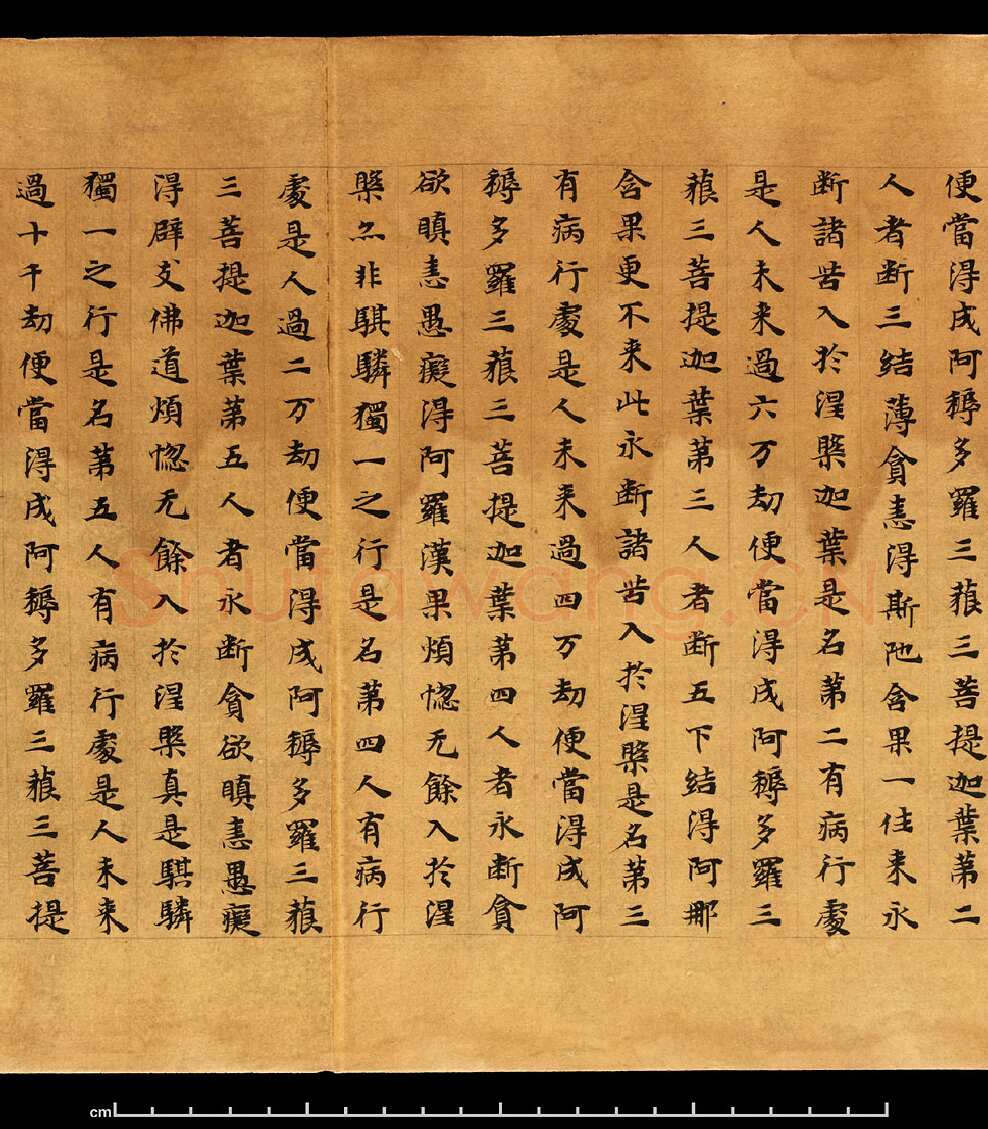 便當得成阿耨多羅三藐三菩提迦葉第二
人者断三結薄貪恚得斯陁含果一住来永
断諸苦入於涅槃迦葉是名第二有病行處
是人未来過六万劫便當得成阿耨多羅三
藐三菩提迦葉第三人者断五下結得阿那
含果更不来此永断諸苦入於涅槃是名第三
有病行處是人未来過四万劫便當得成阿
耨多羅三藐三菩提迦葉第四人者永断貪
欲瞋恚愚癡得阿羅漢果煩惚无餘入於涅
槃亦非騏驎獨一之行是名第四人有病行
處是人過二万劫便當得成阿耨多羅三藐
三菩提迦葉第五人者永断貪欲瞋恚愚癡
得辟支佛道煩惚无餘入於涅槃真是騏驎
獨一之行是名第五人有病行處是人未来
過十千劫便當得成阿耨多羅三藐三菩提
Shufawang.CN
cm